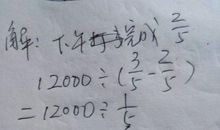 解：下午完成 2/5
12000÷(3/5-2/5)
=12000÷1/5